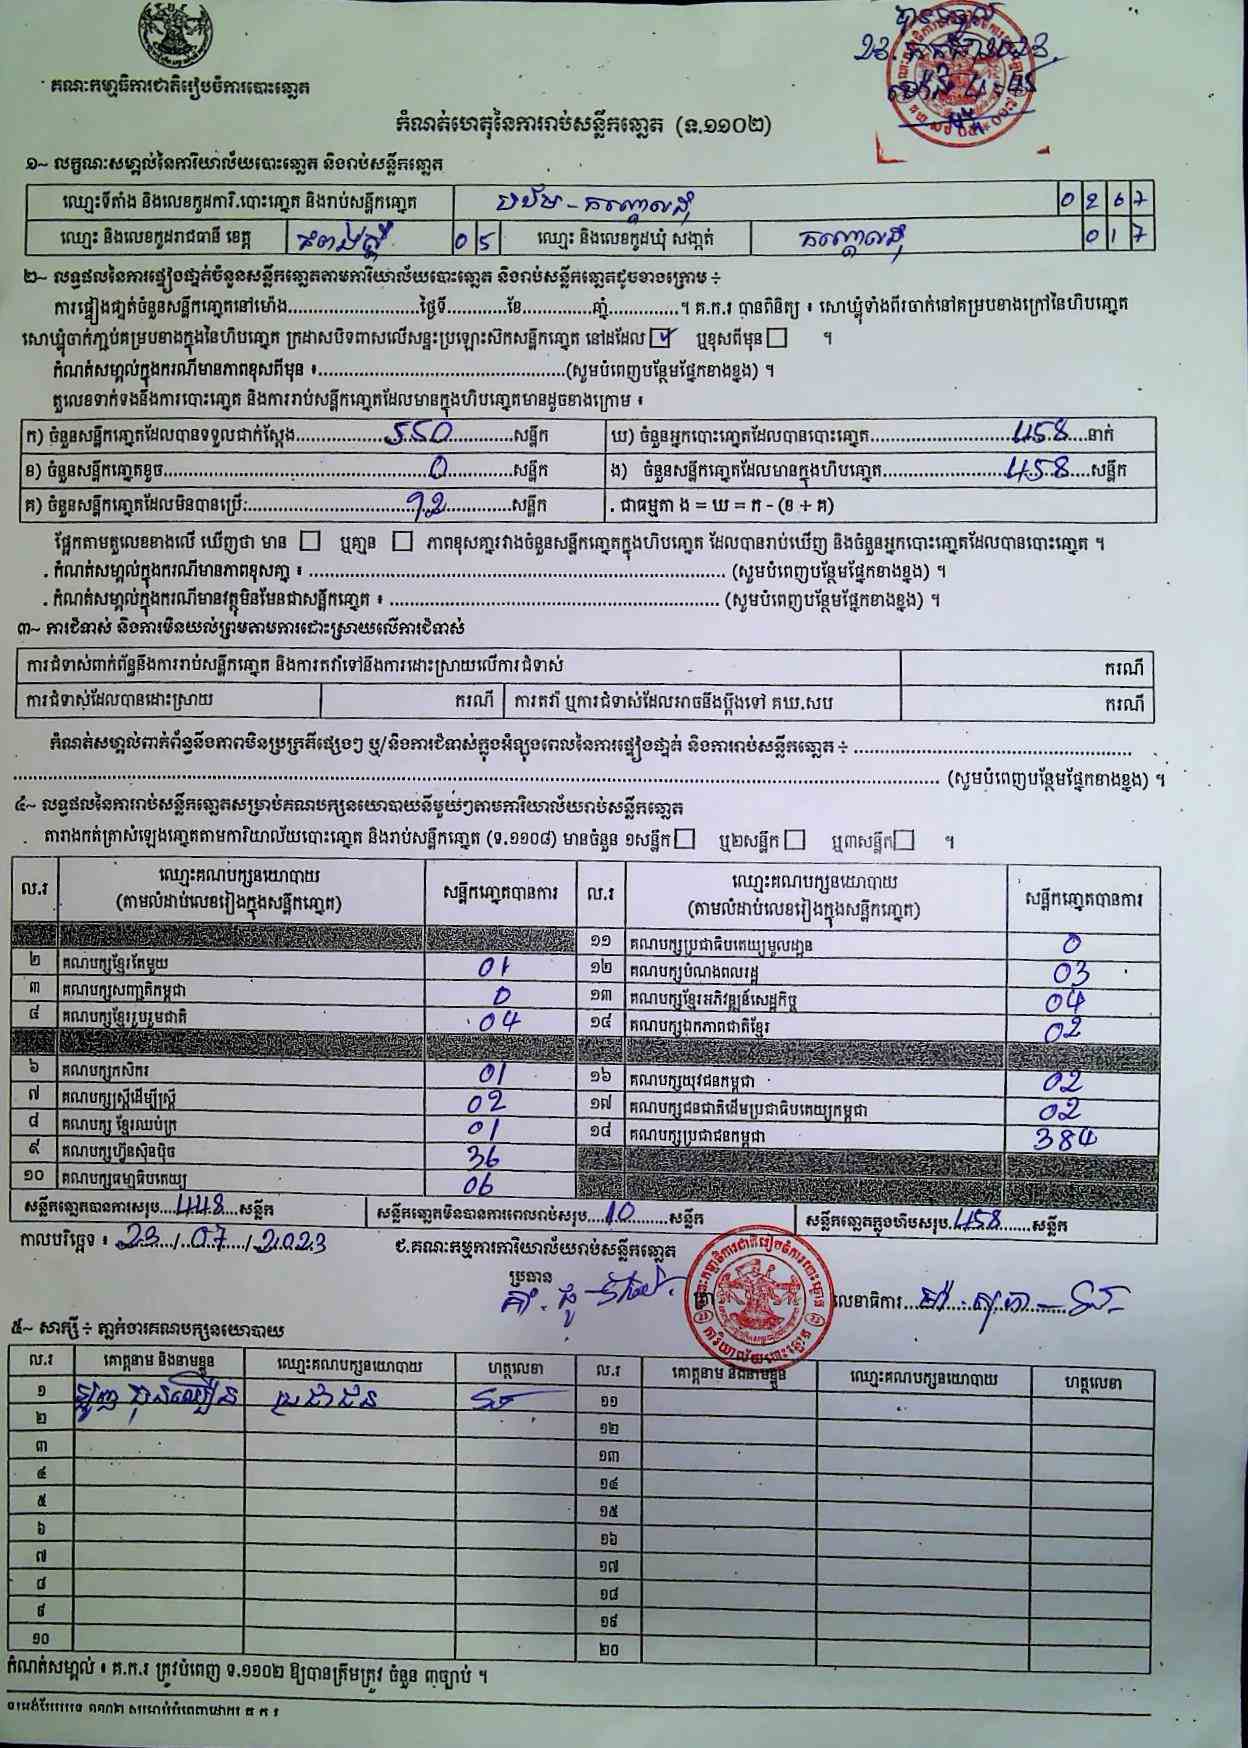 គណៈកម្មាធិការជាតិរៀបចំការបោះឆ្នោត
កំណត់ហេតុនៃការរាប់សន្លឹកឆ្នោត (ទ.១១០២)
១~ លក្ខណៈសម្គាល់នៃការិយាល័យបោះឆ្នោត និងរាប់សន្លឹកឆ្នោត
ឈ្មោះទីតាំង និងលេខកូដការិ.បោះឆ្នោត និងរាប់សន្លឹកឆ្នោត 0267
ឈ្មោះ និងលេខកូដរាជធានី ខេត្ត កំពង់ស្ពឺ 05 ឈ្មោះ និងលេខកូដឃុំ សង្កាត់ កណ្តោលដុំ 017
២~ លទ្ធផលនៃការផ្ទៀងផ្ទាត់ចំនួនសន្លឹកឆ្នោតតាមការិយាល័យបោះឆ្នោត និងរាប់សន្លឹកឆ្នោតដូចខាងក្រោម ÷
ការផ្ទៀងផ្ទាត់ចំនួនសន្លឹកឆ្នោតនៅម៉ោង..........ថ្ងៃទី..........ខែ..........ឆ្នាំ..........។ គ.ក.រ បានពិនិត្យ ៖ សោឃ្លុំទាំងពីរចាក់នៅគម្របខាងក្រៅនៃហិបឆ្នោត
សោឃ្លុំចាក់ភ្ជាប់គម្របខាងក្នុងនៃហិបឆ្នោត ក្រដាសបិទពាសលើសន្ទះប្រឡោះស៊កសន្លឹកឆ្នោត នៅដដែល ☑ ឬខុសពីមុន ☐ ។
កំណត់សម្គាល់ក្នុងករណីមានភាពខុសពីមុន ៖..........(សូមបំពេញបន្ថែមផ្នែកខាងខ្នង) ។
តួលេខទាក់ទងនឹងការបោះឆ្នោត និងការរាប់សន្លឹកឆ្នោតដែលមានក្នុងហិបឆ្នោតមានដូចខាងក្រោម ៖
ក) ចំនួនសន្លឹកឆ្នោតដែលបានទទួលជាក់ស្តែង....550....សន្លឹក ឃ) ចំនួនអ្នកបោះឆ្នោតដែលបានបោះឆ្នោត....458....នាក់
ខ) ចំនួនសន្លឹកឆ្នោតខូច....0....សន្លឹក ង) ចំនួនសន្លឹកឆ្នោតដែលមានក្នុងហិបឆ្នោត....458....សន្លឹក
គ) ចំនួនសន្លឹកឆ្នោតដែលមិនបានប្រើ:....92....សន្លឹក . ជាធម្មតា ង = ឃ = ក - (ខ + គ)
ផ្អែកតាមតួលេខខាងលើ ឃើញថា មាន ☐ ឬគ្មាន ☐ ភាពខុសគ្នារវាងចំនួនសន្លឹកឆ្នោតក្នុងហិបឆ្នោត ដែលបានរាប់ឃើញ និងចំនួនអ្នកបោះឆ្នោតដែលបានបោះឆ្នោត ។
. កំណត់សម្គាល់ក្នុងករណីមានភាពខុសគ្នា ៖ .......... (សូមបំពេញបន្ថែមផ្នែកខាងខ្នង) ។
. កំណត់សម្គាល់ក្នុងករណីមានវត្ថុមិនមែនជាសន្លឹកឆ្នោត ៖ .......... (សូមបំពេញបន្ថែមផ្នែកខាងខ្នង) ។
៣~ ការជំទាស់ និងការមិនយល់ព្រមតាមការដោះស្រាយលើការជំទាស់
ការជំទាស់ពាក់ព័ន្ធនឹងការរាប់សន្លឹកឆ្នោត និងការតវ៉ាទៅនឹងការដោះស្រាយលើការជំទាស់ ករណី
ការជំទាស់ដែលបានដោះស្រាយ ករណី ការតវ៉ា ឬការជំទាស់ដែលអាចនឹងប្តឹងទៅ គឃ.សប ករណី
កំណត់សម្គាល់ពាក់ព័ន្ធនឹងភាពមិនប្រក្រតីផ្សេងៗ ឬ/និងការជំទាស់ក្នុងអំឡុងពេលនៃការផ្ទៀងផ្ទាត់ និងការរាប់សន្លឹកឆ្នោត ÷ ..........
.......... (សូមបំពេញបន្ថែមផ្នែកខាងខ្នង) ។
៤~ លទ្ធផលនៃការរាប់សន្លឹកឆ្នោតសម្រាប់គណបក្សនយោបាយនីមួយៗតាមការិយាល័យរាប់សន្លឹកឆ្នោត
តារាងកត់ត្រាសំឡេងឆ្នោតតាមការិយាល័យបោះឆ្នោត និងរាប់សន្លឹកឆ្នោត (ទ.១១០៨) មានចំនួន ១សន្លឹក ☐ ឬ២សន្លឹក ☐ ឬ៣សន្លឹក ☐ ។
ល.រ ឈ្មោះគណបក្សនយោបាយ (តាមលំដាប់លេខរៀងក្នុងសន្លឹកឆ្នោត) សន្លឹកឆ្នោតបានការ ល.រ ឈ្មោះគណបក្សនយោបាយ (តាមលំដាប់លេខរៀងក្នុងសន្លឹកឆ្នោត) សន្លឹកឆ្នោតបានការ
១១ គណបក្សប្រជាធិបតេយ្យមូលដ្ឋាន 0
២ គណបក្សខ្មែរតែមួយ 01 ១២ គណបក្សបំណងពលរដ្ឋ 03
៣ គណបក្សសញ្ជាតិកម្ពុជា 0 ១៣ គណបក្សខ្មែរអភិវឌ្ឍន៍សេដ្ឋកិច្ច 04
៤ គណបក្សខ្មែររួបរួមជាតិ 04 ១៤ គណបក្សឯកភាពជាតិខ្មែរ 02
៦ គណបក្សកសិករ 01 ១៦ គណបក្សយុវជនកម្ពុជា 02
៧ គណបក្សស្ត្រីដើម្បីស្ត្រី 02 ១៧ គណបក្សជនជាតិដើមប្រជាធិបតេយ្យកម្ពុជា 02
៨ គណបក្ស ខ្មែរឈប់ក្រ 01 ១៨ គណបក្សប្រជាជនកម្ពុជា 384
៩ គណបក្សហ្វ៊ុនស៊ិនប៉ិច 36
១០ គណបក្សធម្មាធិបតេយ្យ 06
សន្លឹកឆ្នោតបានការសរុប....448....សន្លឹក សន្លឹកឆ្នោតមិនបានការពេលរាប់សរុប....10....សន្លឹក សន្លឹកឆ្នោតក្នុងហិបសរុប.458....សន្លឹក
កាលបរិច្ឆេទ ៖ 23/07/2023 ជ.គណៈកម្មការការិយាល័យរាប់សន្លឹកឆ្នោត
ប្រធាន លេខាធិការ
៥~ សាក្សី ÷ ភ្នាក់ងារគណបក្សនយោបាយ
ល.រ គោត្តនាម និងនាមខ្លួន ឈ្មោះគណបក្សនយោបាយ ហត្ថលេខា ល.រ គោត្តនាម និងនាមខ្លួន ឈ្មោះគណបក្សនយោបាយ ហត្ថលេខា
១ ប្រជាជន ១១
២ ១២
៣ ១៣
៤ ១៤
៥ ១៥
៦ ១៦
៧ ១៧
៨ ១៨
៩ ១៩
១០ ២០
កំណត់សម្គាល់ ៖ គ.ក.រ ត្រូវបំពេញ ទ.១១០២ ឱ្យបានត្រឹមត្រូវ ចំនួន ៣ច្បាប់ ។